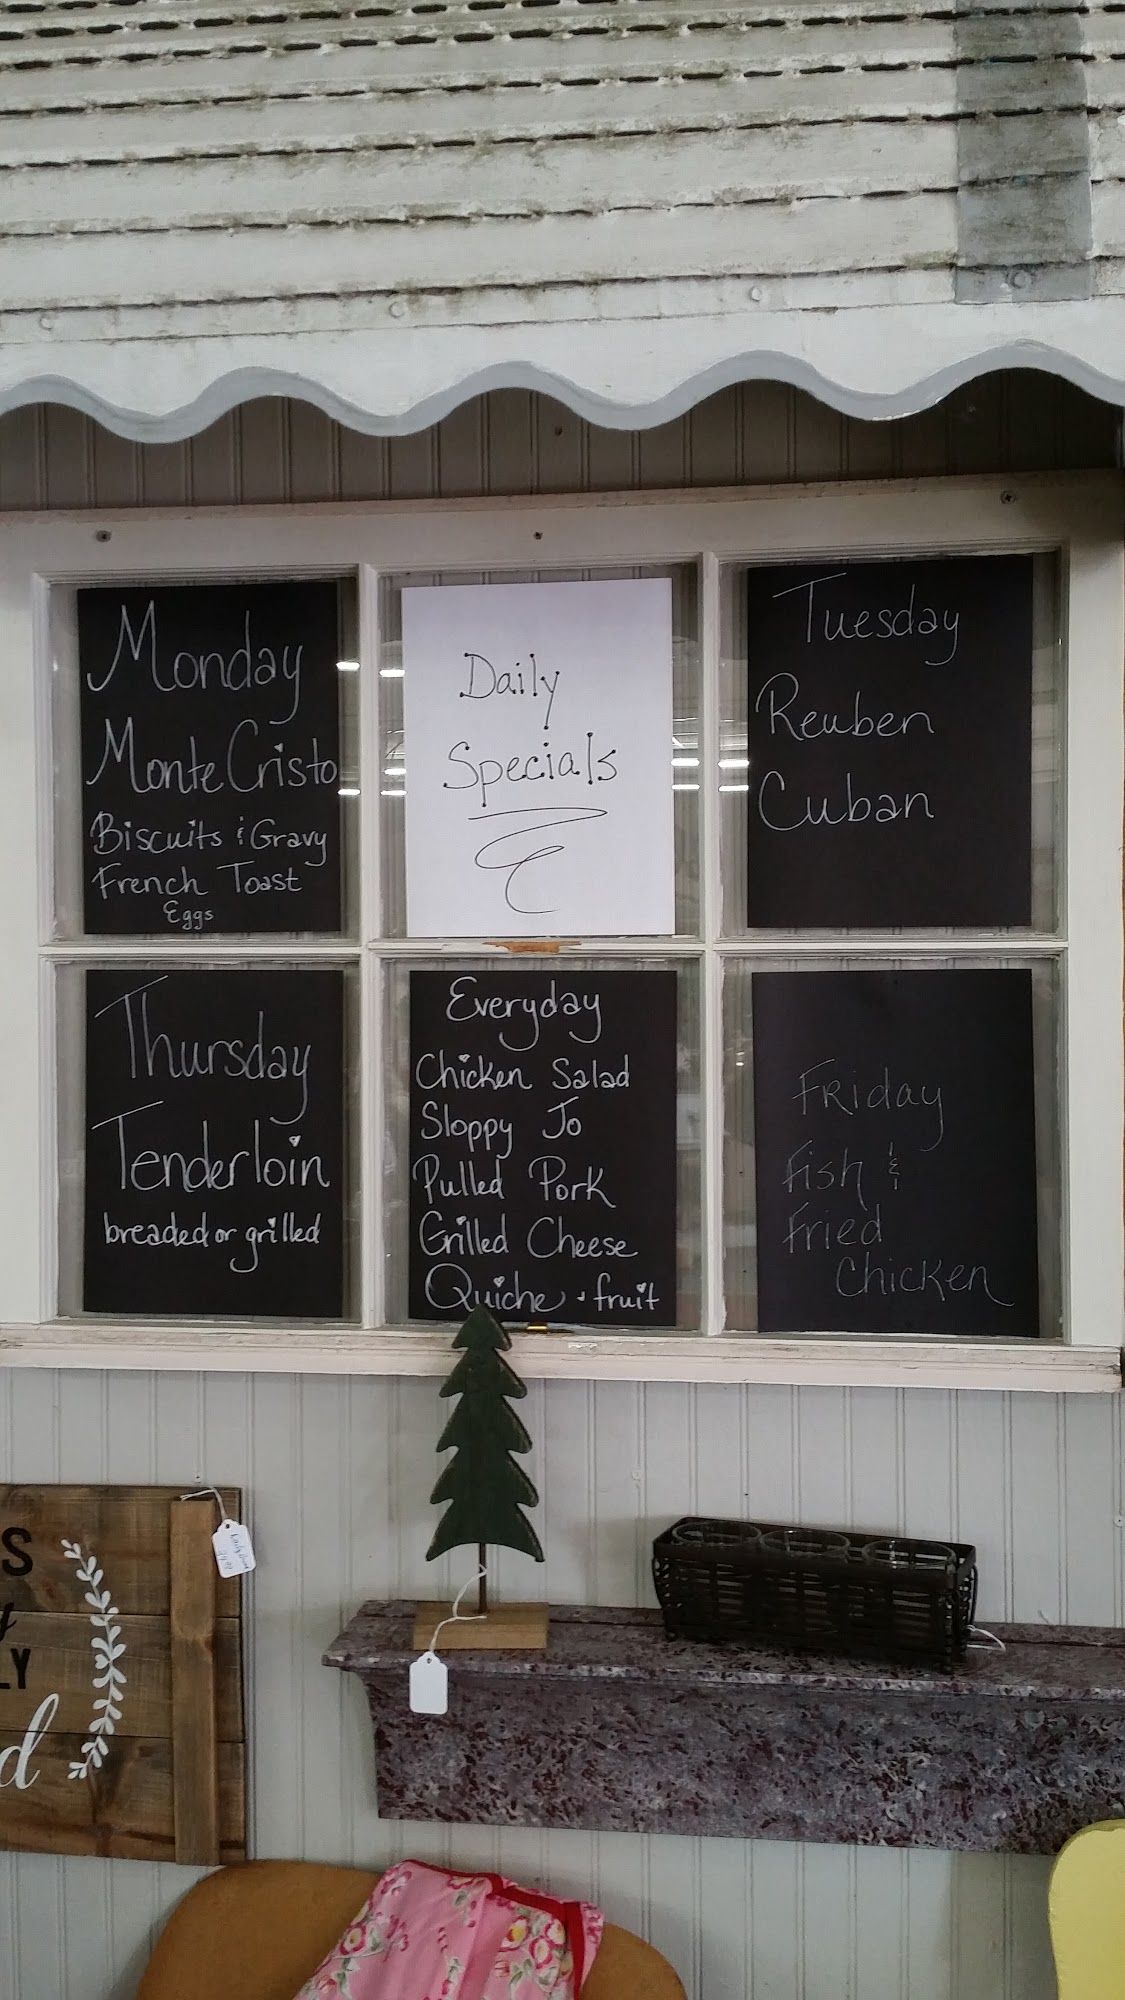 Monday
Monte Cristo
Biscuits & Gravy
French Toast
Eggs
Daily
Specials
Tuesday
Reuben
Cuban
Thursday
Tenderloin
breaded or grilled
Everyday
Chicken Salad
Sloppy Jo
Pulled Pork
Grilled Cheese
Quiche & fruit
FRiday
Fish &
Fried
Chicken
S
LY
d